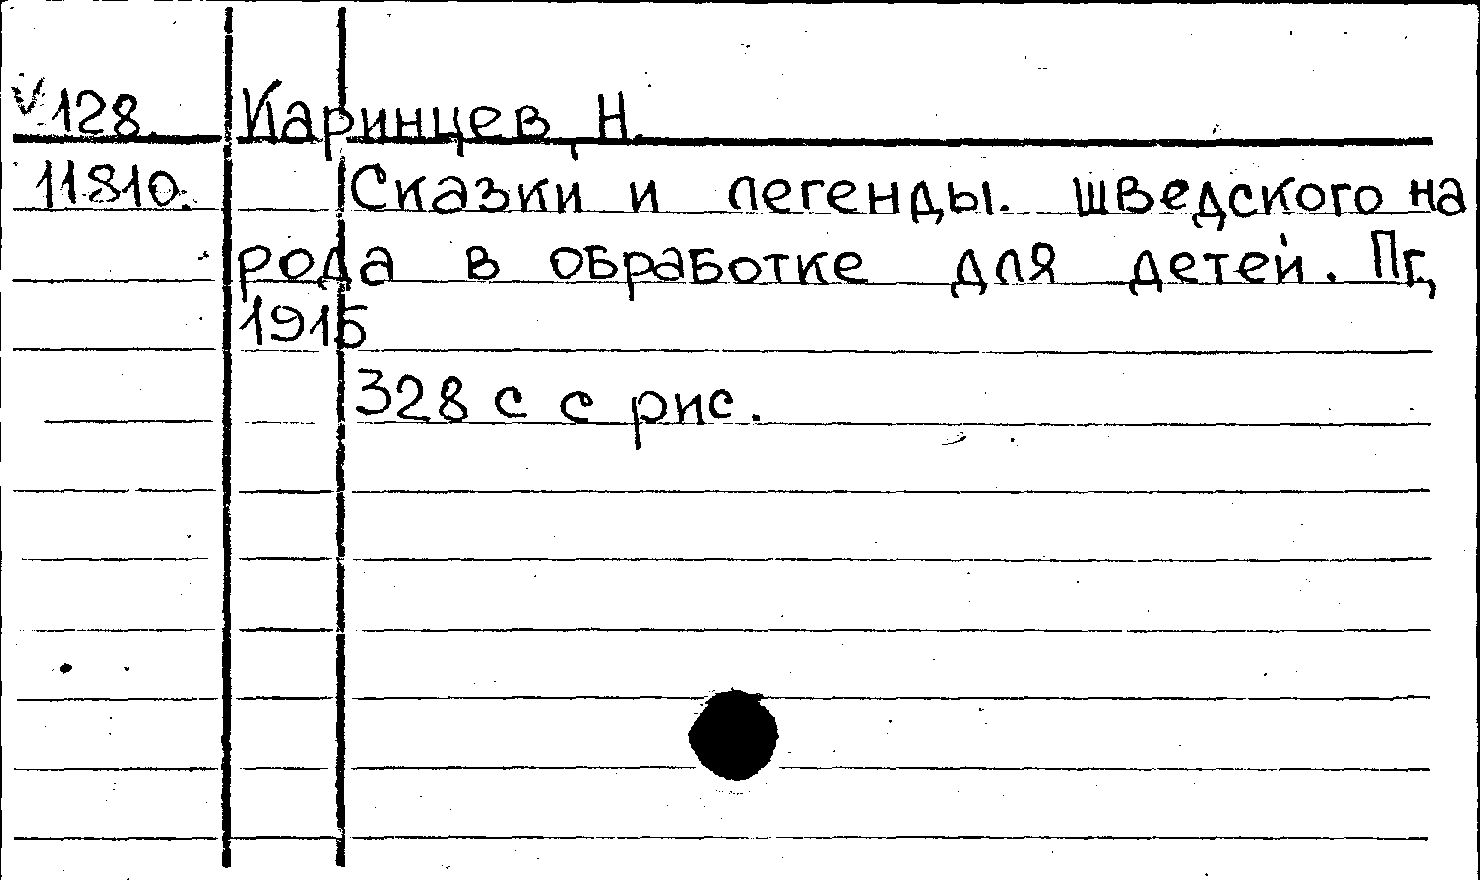 V 128. Каринцев, Н.
11810. Сказки и легенды. шведского на
рода в обработке для детей. Пг,
1915
328 с с рис.